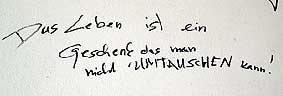 Das Leben ist ein
Geschenk das man
nicht 'UMTAUSCHEN kann!